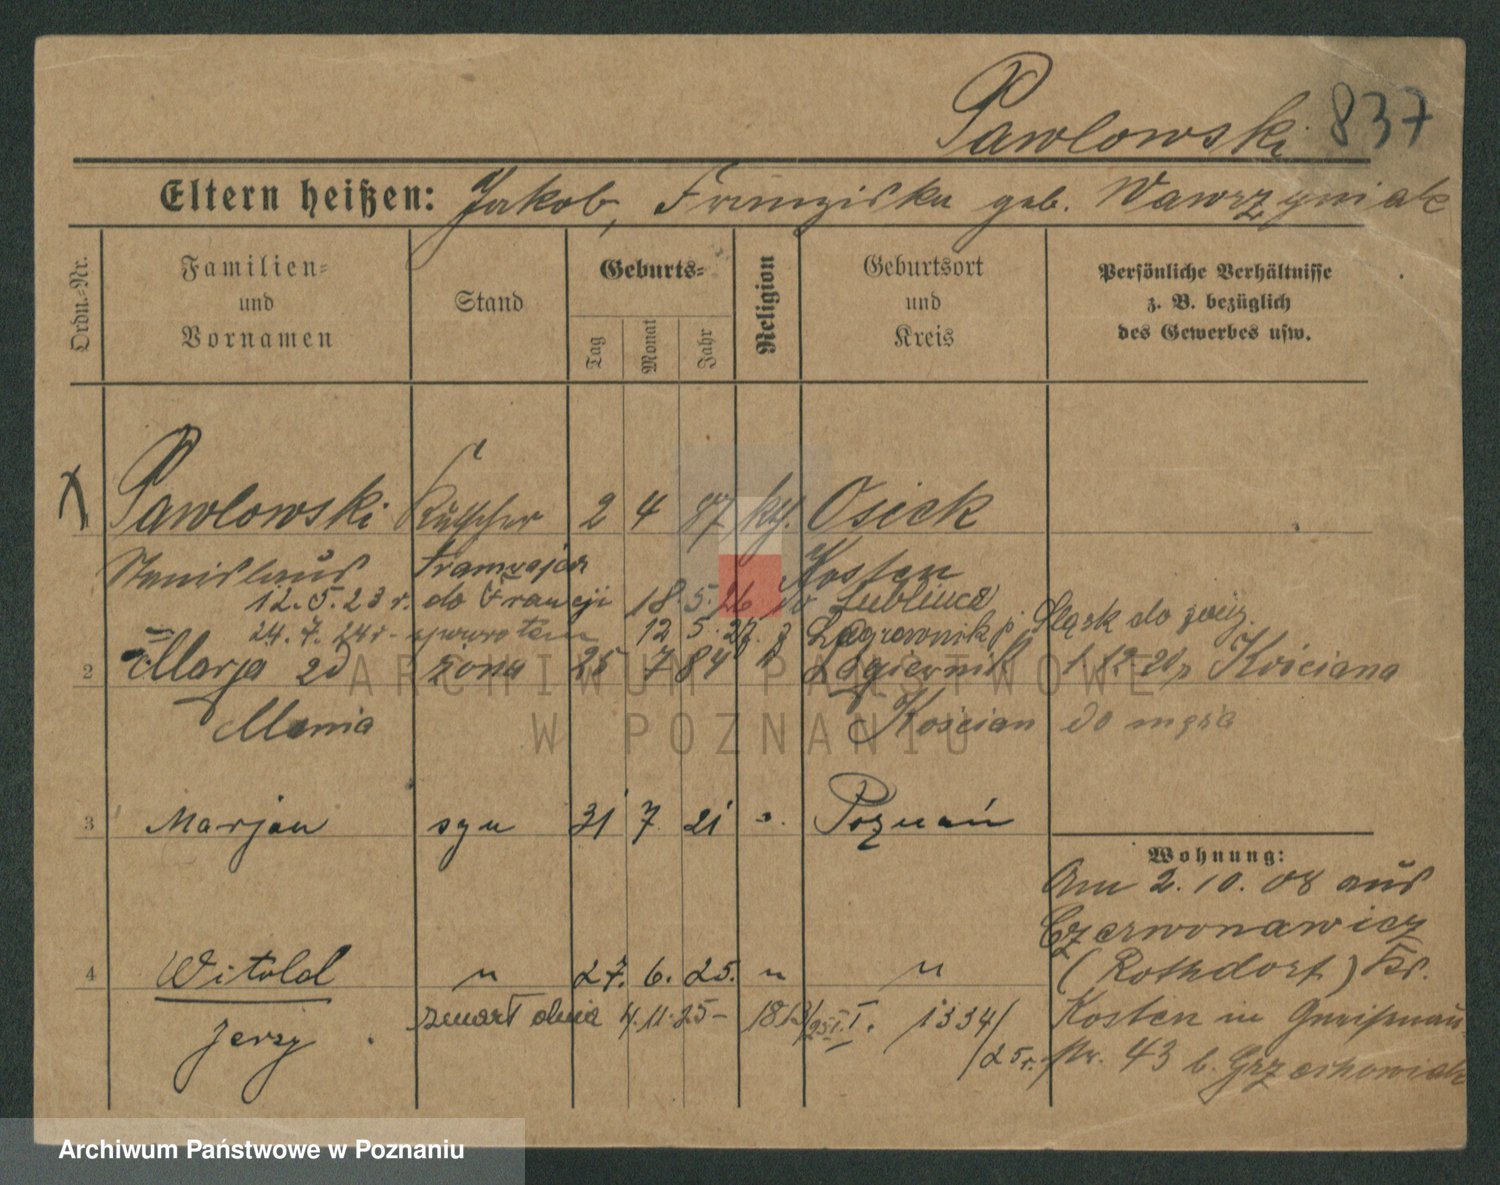 Pawlowski 837
Eltern heißen: Jakob, Franziska geb. Wawrzyniak
Ordn.=Nr.
Familien=
und
Vornamen
Stand
Geburts=
Tag
Monat
Jahr
Religion
Geburtsort
und
Kreis
Persönliche Verhältnisse
z. B. bezüglich
des Gewerbes usw.
1 Pawlowski Kutscher 2 4 87 kt. Osiek
Stanislaus tramwajar Kosten
12.5.23 r. do Francji 18.5.26 do Lublińca Śląsk do
24.7.24 r. 12 5 27. z
2 Marja zd żona 25 7 84 Łagiewnik 1.12.21 z Kościana
Mania Kościan do męża
3 Marjan syn 31 7. 21 ". Poznań
Wohnung:
Am 2.10.08 aus
Czerwonawicz
4 Witold " 27. 6. 25. " " (Rothdorf) Kr.
Jerzy zmarł dnia 4.11.25 – 1334/ Kosten in Gneisenau
25 r. str. 43 b. Grzechowiak
ARCHIWUM PAŃSTWOWE
W POZNANIU
Archiwum Państwowe w Poznaniu